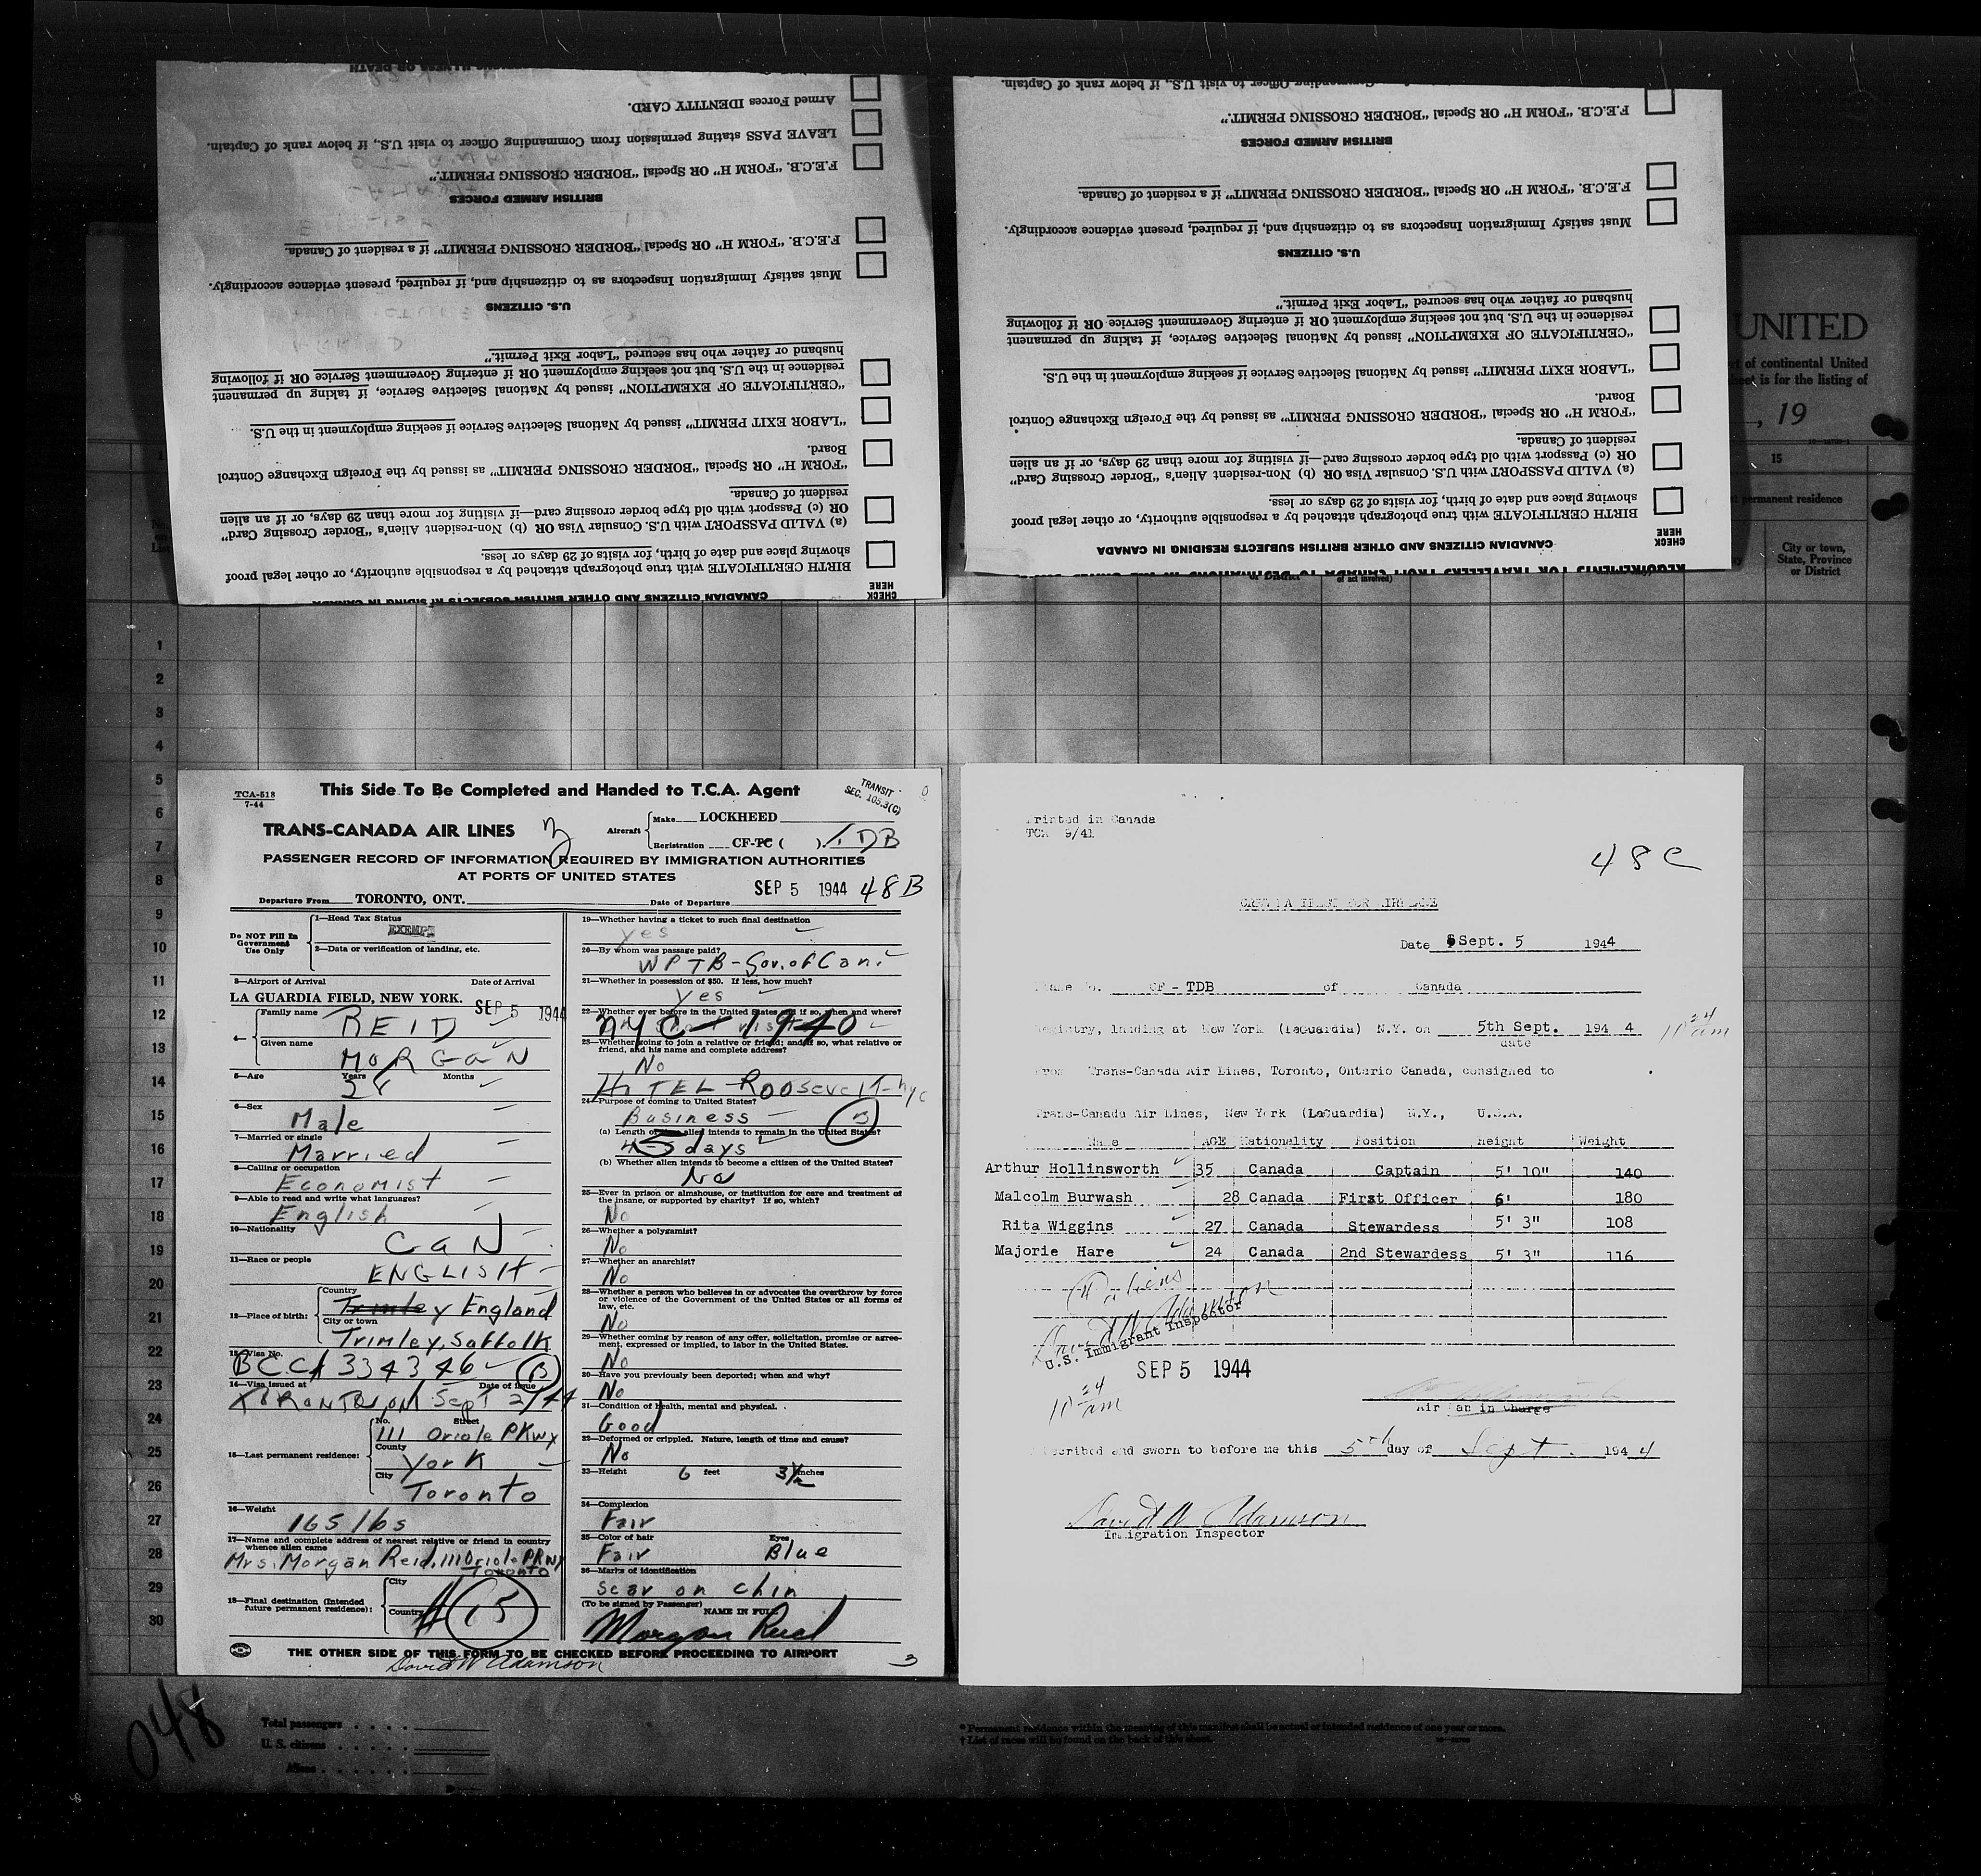 Armed Forces IDENTITY CARD.
LEAVE PASS stating permission from Commanding Officer to visit U.S., if below rank of Captain.
F.E.C.B. "FORM H" OR Special "BORDER CROSSING PERMIT."
BRITISH ARMED FORCES
F.E.C.B. "FORM H" OR Special "BORDER CROSSING PERMIT" if a resident of Canada.
Must satisfy Immigration Inspectors as to citizenship and, if required, present evidence accordingly.
U.S. CITIZENS
husband or father who has secured "Labor Exit Permit."
residence in the U.S. but not seeking employment OR if entering Government Service OR if following
"CERTIFICATE OF EXEMPTION" issued by National Selective Service, if taking up permanent
"LABOR EXIT PERMIT" issued by National Selective Service if seeking employment in the U.S.
Board.
"FORM H" OR Special "BORDER CROSSING PERMIT" as issued by the Foreign Exchange Control
resident of Canada.
OR (c) Passport with old type border crossing card—if visiting for more than 29 days, or if an alien
(a) VALID PASSPORT with U.S. Consular Visa OR (b) Non-resident Alien's "Border Crossing Card"
showing place and date of birth, for visits of 29 days or less.
BIRTH CERTIFICATE with true photograph attached by a responsible authority, or other legal proof
CHECK HERE
CANADIAN CITIZENS AND OTHER BRITISH SUBJECTS RESIDING IN CANADA
Commanding Officer to visit U.S., if below rank of Captain.
F.E.C.B. "FORM H" OR Special "BORDER CROSSING PERMIT."
BRITISH ARMED FORCES
F.E.C.B. "FORM H" OR Special "BORDER CROSSING PERMIT" if a resident of Canada.
Must satisfy Immigration Inspectors as to citizenship and, if required, present evidence accordingly.
U.S. CITIZENS
husband or father who has secured "Labor Exit Permit."
residence in the U.S. but not seeking employment OR if entering Government Service OR if following
"CERTIFICATE OF EXEMPTION" issued by National Selective Service, if taking up permanent
"LABOR EXIT PERMIT" issued by National Selective Service if seeking employment in the U.S.
Board.
"FORM H" OR Special "BORDER CROSSING PERMIT" as issued by the Foreign Exchange Control
resident of Canada.
OR (c) Passport with old type border crossing card—if visiting for more than 29 days, or if an alien
(a) VALID PASSPORT with U.S. Consular Visa OR (b) Non-resident Alien's "Border Crossing Card"
showing place and date of birth, for visits of 29 days or less.
BIRTH CERTIFICATE with true photograph attached by a responsible authority, or other legal proof
CHECK HERE
CANADIAN CITIZENS AND OTHER BRITISH SUBJECTS RESIDING IN CANADA
REQUIREMENTS FOR TRAVELLERS FROM CANADA TO DESTINATIONS IN
or District of act involved)
UNITED
of continental United
is for the listing of
, 19
15
permanent residence
City or town,
State, Province
or District
1
2
3
4
5
6
7
8
9
10
11
12
13
14
15
16
17
18
19
20
21
22
23
24
25
26
27
28
29
30
TCA-518
7-44
This Side To Be Completed and Handed to T.C.A. Agent
TRANSIT
SEC. 105.3(C)
TRANS-CANADA AIR LINES
Aircraft
Make LOCKHEED
Registration CF-TC ( ) TDB
PASSENGER RECORD OF INFORMATION REQUIRED BY IMMIGRATION AUTHORITIES
AT PORTS OF UNITED STATES
SEP 5 1944 48B
Departure From TORONTO, ONT. Date of Departure
Do NOT Fill In
Government
Use Only
1—Head Tax Status
EXEMPT
2—Data or verification of landing, etc.
3—Airport of Arrival Date of Arrival
LA GUARDIA FIELD, NEW YORK. SEP 5 1944
4— Family name
REID
Given name
MORGAN
5—Age Years Months
28
6—Sex
Male
7—Married or single
Married
8—Calling or occupation
Economist
9—Able to read and write what languages?
English
10—Nationality
CAN
11—Race or people
ENGLISH
12—Place of birth: Country
Trimley England
City or town
Trimley, Suffolk
13—Visa No.
BCCA 334346 B
14—Visa issued at Date of issue
TORONTO, ont Sept 2/44
15—Last permanent residence:
No. Street
111 Oriole PKwy
County
York
City
Toronto
16—Weight
165 lbs
17—Name and complete address of nearest relative or friend in country
whence alien came
Mrs. Morgan Reid, 111 Oriole PKWY
Toronto
18—Final destination (Intended
future permanent residence):
City
Country
15
19—Whether having a ticket to such final destination
yes
20—By whom was passage paid?
WPTB - Gov. of Can.
21—Whether in possession of $50. If less, how much?
Yes
22—Whether ever before in the United States and if so, when and where?
NYC - 1940
23—Whether going to join a relative or friend; and if so, what relative or
friend, and his name and complete address?
No
HOTEL - Roosevelt - nyc
24—Purpose of coming to United States?
Business B
(a) Length of time alien intends to remain in the United States?
4-5 days
(b) Whether alien intends to become a citizen of the United States?
No
25—Ever in prison or almshouse, or institution for care and treatment of
the insane, or supported by charity? If so, which?
No
26—Whether a polygamist?
No
27—Whether an anarchist?
No
28—Whether a person who believes in or advocates the overthrow by force
or violence of the Government of the United States or all forms of
law, etc.
No
29—Whether coming by reason of any offer, solicitation, promise or agree-
ment, expressed or implied, to labor in the United States.
No
30—Have you previously been deported; when and why?
No
31—Condition of health, mental and physical.
Good
32—Deformed or crippled. Nature, length of time and cause?
No
33—Height 6 feet 3½ inches
34—Complexion
Fair
35—Color of hair Eyes
Fair Blue
36—Marks of identification
scar on chin
(To be signed by Passenger) NAME IN FULL
Morgan Reid
THE OTHER SIDE OF THIS FORM TO BE CHECKED BEFORE PROCEEDING TO AIRPORT
David W Adamson
3
Printed in Canada
TCA 9/41
48C
CREW MANIFEST FOR AIRPLANE
Date Sept. 5 1944
Plane No. CF - TDB of Canada
Registry, landing at New York (LaGuardia) N.Y. on 5th Sept. 194 4
date
10 24 am
From Trans-Canada Air Lines, Toronto, Ontario Canada, consigned to
Trans-Canada Air Lines, New York (LaGuardia) N.Y., U.S.A.
Name AGE Nationality Position Height Weight
Arthur Hollinsworth 35 Canada Captain 5' 10" 140
Malcolm Burwash 28 Canada First Officer 6' 180
Rita Wiggins 27 Canada Stewardess 5' 3" 108
Majorie Hare 24 Canada 2nd Stewardess 5' 3" 116
David W Adamson
U.S. Immigrant Inspector
SEP 5 1944
10 24 am
Air Man in Charge
scribed and sworn to before me this 5th day of Sept. 194 4
David W Adamson
Immigration Inspector
048
Total passengers
U. S. citizens
Aliens
* Permanent residence within the meaning of this manifest shall be actual or intended residence of one year or more.
† List of races will be found on the back of this sheet.